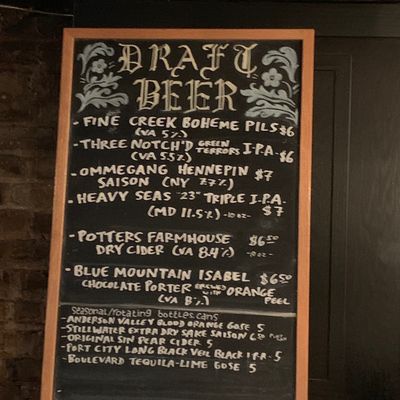 DRAFT
BEER
- FINE CREEK BOHEME PILS $6
(VA 5%)
- THREE NOTCH'D GREEN TERRORS I.P.A. $6
(VA 5.5%)
- OMMEGANG HENNEPIN $7
SAISON (NY 7.7%)
- HEAVY SEAS "23" TRIPLE I.P.A.
(MD 11.5%) -10 oz- $7
- POTTERS FARMHOUSE $6.50
DRY CIDER (VA 8.4%) -10 oz-
- BLUE MOUNTAIN ISABEL $6.50
CHOCOLATE PORTER BREWED WITH ORANGE
(VA 8%) PEEL
Seasonal/rotating bottles.cans
- ANDERSON VALLEY BLOOD ORANGE GOSE 5
- STILLWATER EXTRA DRY SAKE SAISON 6.50
- ORIGINAL SIN PEAR CIDER 5
- PORT CITY LONG BLACK VEIL BLACK I.P.A. 5
- BOULEVARD TEQUILA-LIME GOSE 5